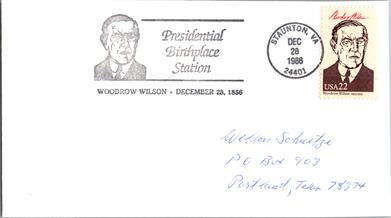 Presidential
Birthplace
Station
WOODROW WILSON • DECEMBER 28, 1856
STAUNTON, VA
DEC
28
1986
24401
Woodrow Wilson
USA22
Woodrow Wilson
Weldon Schuetze
PO Box 903
Portland, Texas 78374